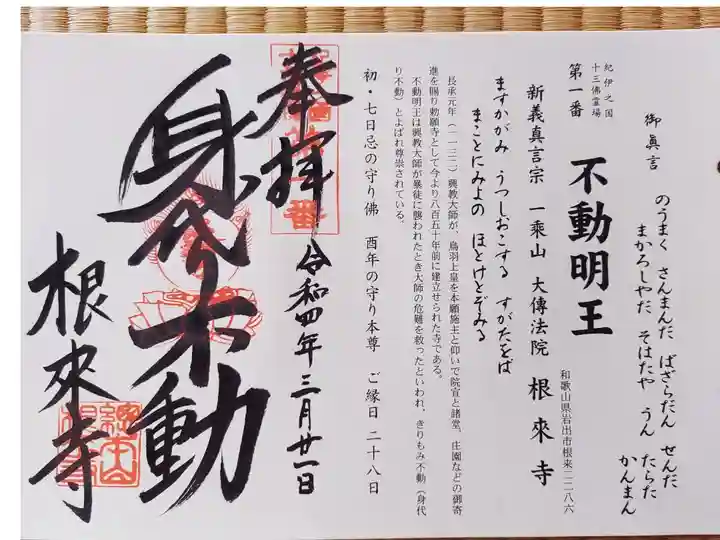 御眞言
のうまく さんまんだ ばざらだん せんだ
まかろしやだ そはたや うん たらた
かんまん
紀伊之国
十三佛霊場
第一番
不動明王
和歌山県岩出市根来二二八六
新義真言宗 一乘山 大傳法院 根來寺
ますかがみ うつしおこする すがたをば
まことにみよの ほとけとぞみる
長承元年(一一三二)興教大師が、鳥羽上皇を本願施主と仰いで院宣と諸堂、庄園などの御寄
進を賜り勅願寺として今より八百五十年前に建立せられた寺である。
不動明王は興教大師が暴徒に襲われたとき大師の危難を救ったといわれ、きりもみ不動(身代
り不動)とよばれ尊崇されている。
初・七日忌の守り佛 酉年の守り本尊 ご縁日 二十八日
奉拝
令和四年三月廿一日
身代り不動
根來寺